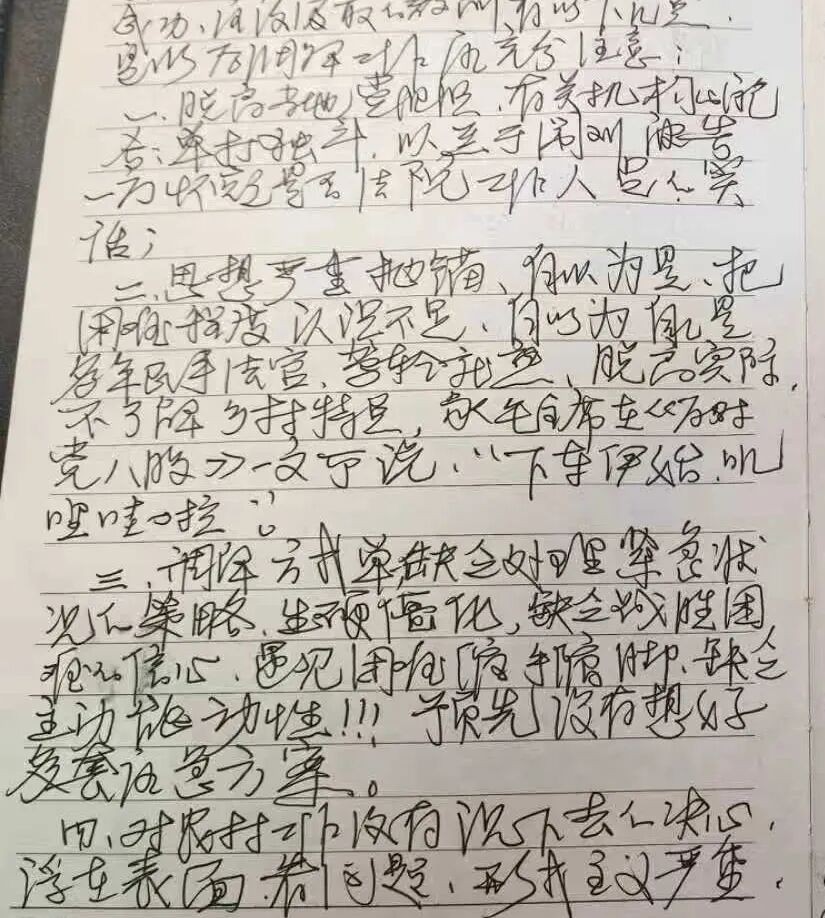 成功,应该吸取的教训,有以下几点.
是以后调解工作应充分注意:
一、脱离当地党组织、有关机构的配
合;单打独斗,以至于闹到被告
一方怀疑是否法院工作人员的实
话;
二、思想严重抛锚、自以为是、把
困难程度认识不足、自以为自己是
多年民事法官、驾轻就熟、脱离实际,
不了解乡村特点,故毛主席在《反对
党八股》一文中说:“下车伊始,叽
哩哇啦”;
三、调解方式单缺乏处理紧急状
况的策略、生硬僵化,缺乏战胜困
难的信心、遇见困难缩手缩脚、缺乏
主动能动性!!!预先没有想好
多套应急方案。
四、对农村工作没有沉下去的决心,
浮在表面看问题、形式主义严重,